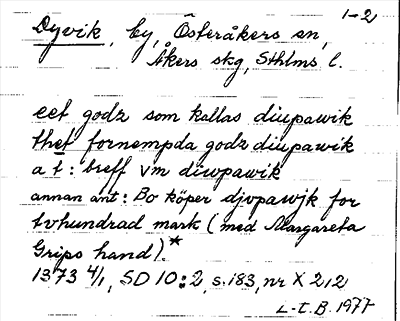 1-2
Dyvik, by, Österåkers sn,
Åkers skg, Sthlms l.
eet godz som kallas diupawik
thet fornempda godz diupawik
a t: breff vm diwpawik
annan ant: Bo köper djvpawjk for
tvhundrad mark (med Margareta
Grips hand).*
1373 4/1, SD 10:2, s.183, nr X 212
L-t.B. 1977